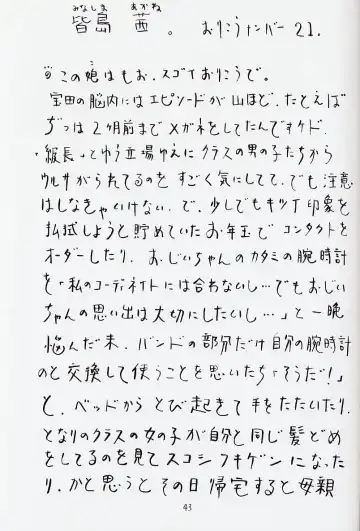 みなしま あかね
皆島 茜。 おりこうナンバー 21.
◎この娘はもお、スゴイおりこうで。
宝田の脳内にはエピソードが山ほど。たとえば
ぢつは2ヶ月前までメガネをしてたんですケド、
“級長”とゆう立場ゆえにクラスの男の子たちから
ウルサがられてるのをすごく気にしてて、でも注意
はしなきゃいけない、で、少しでもキツイ印象を
払拭しようと貯めていたお年玉でコンタクトを
オーダーしたり、おじいちゃんのカタミの腕時計
を「私のコーディネイトには合わないし…でもおじい
ちゃんの思い出は大切にしたいし…」と一晩
悩んだ末、バンドの部分だけ自分の腕時計
のと交換して使うことを思いたち「そうだ!」
と、ベッドからとび起きて手をたたいたり、
となりのクラスの女の子が自分と同じ髪どめ
をしてるのを見てスコシフキゲンになった
り、かと思うとその日帰宅すると母親
43